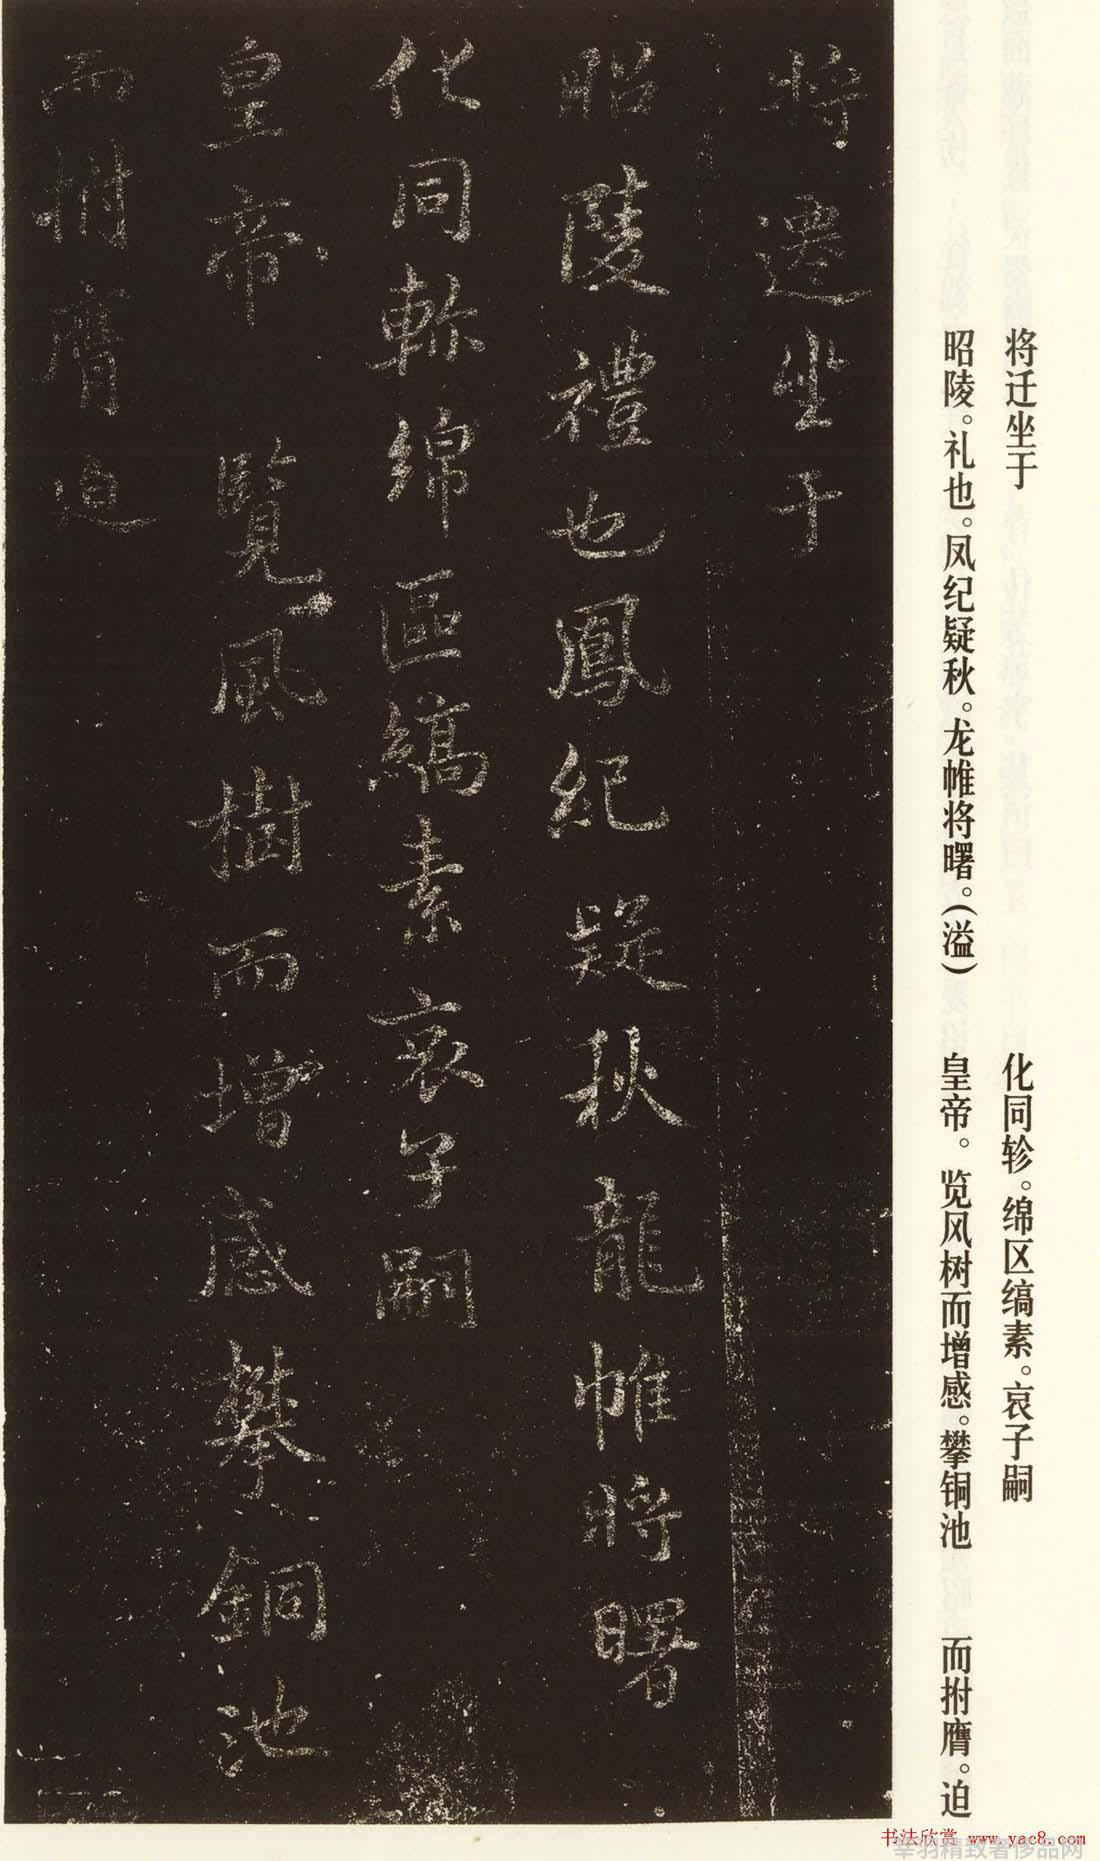 将迁坐于
昭陵。礼也。凤纪疑秋。龙帷将曙。(溢)
化同轸。绵区缟素。哀子嗣
皇帝。览风树而增感。攀铜池
而拊膺。迫
将遷坐于
昭陵禮也鳳紀疑秋龍帷將曙
化同軫綿區縞素哀子嗣
皇帝覽風樹而增感攀銅池
而拊膺迫
书法欣赏 www.yac8.com
幸羽精致奢侈品网